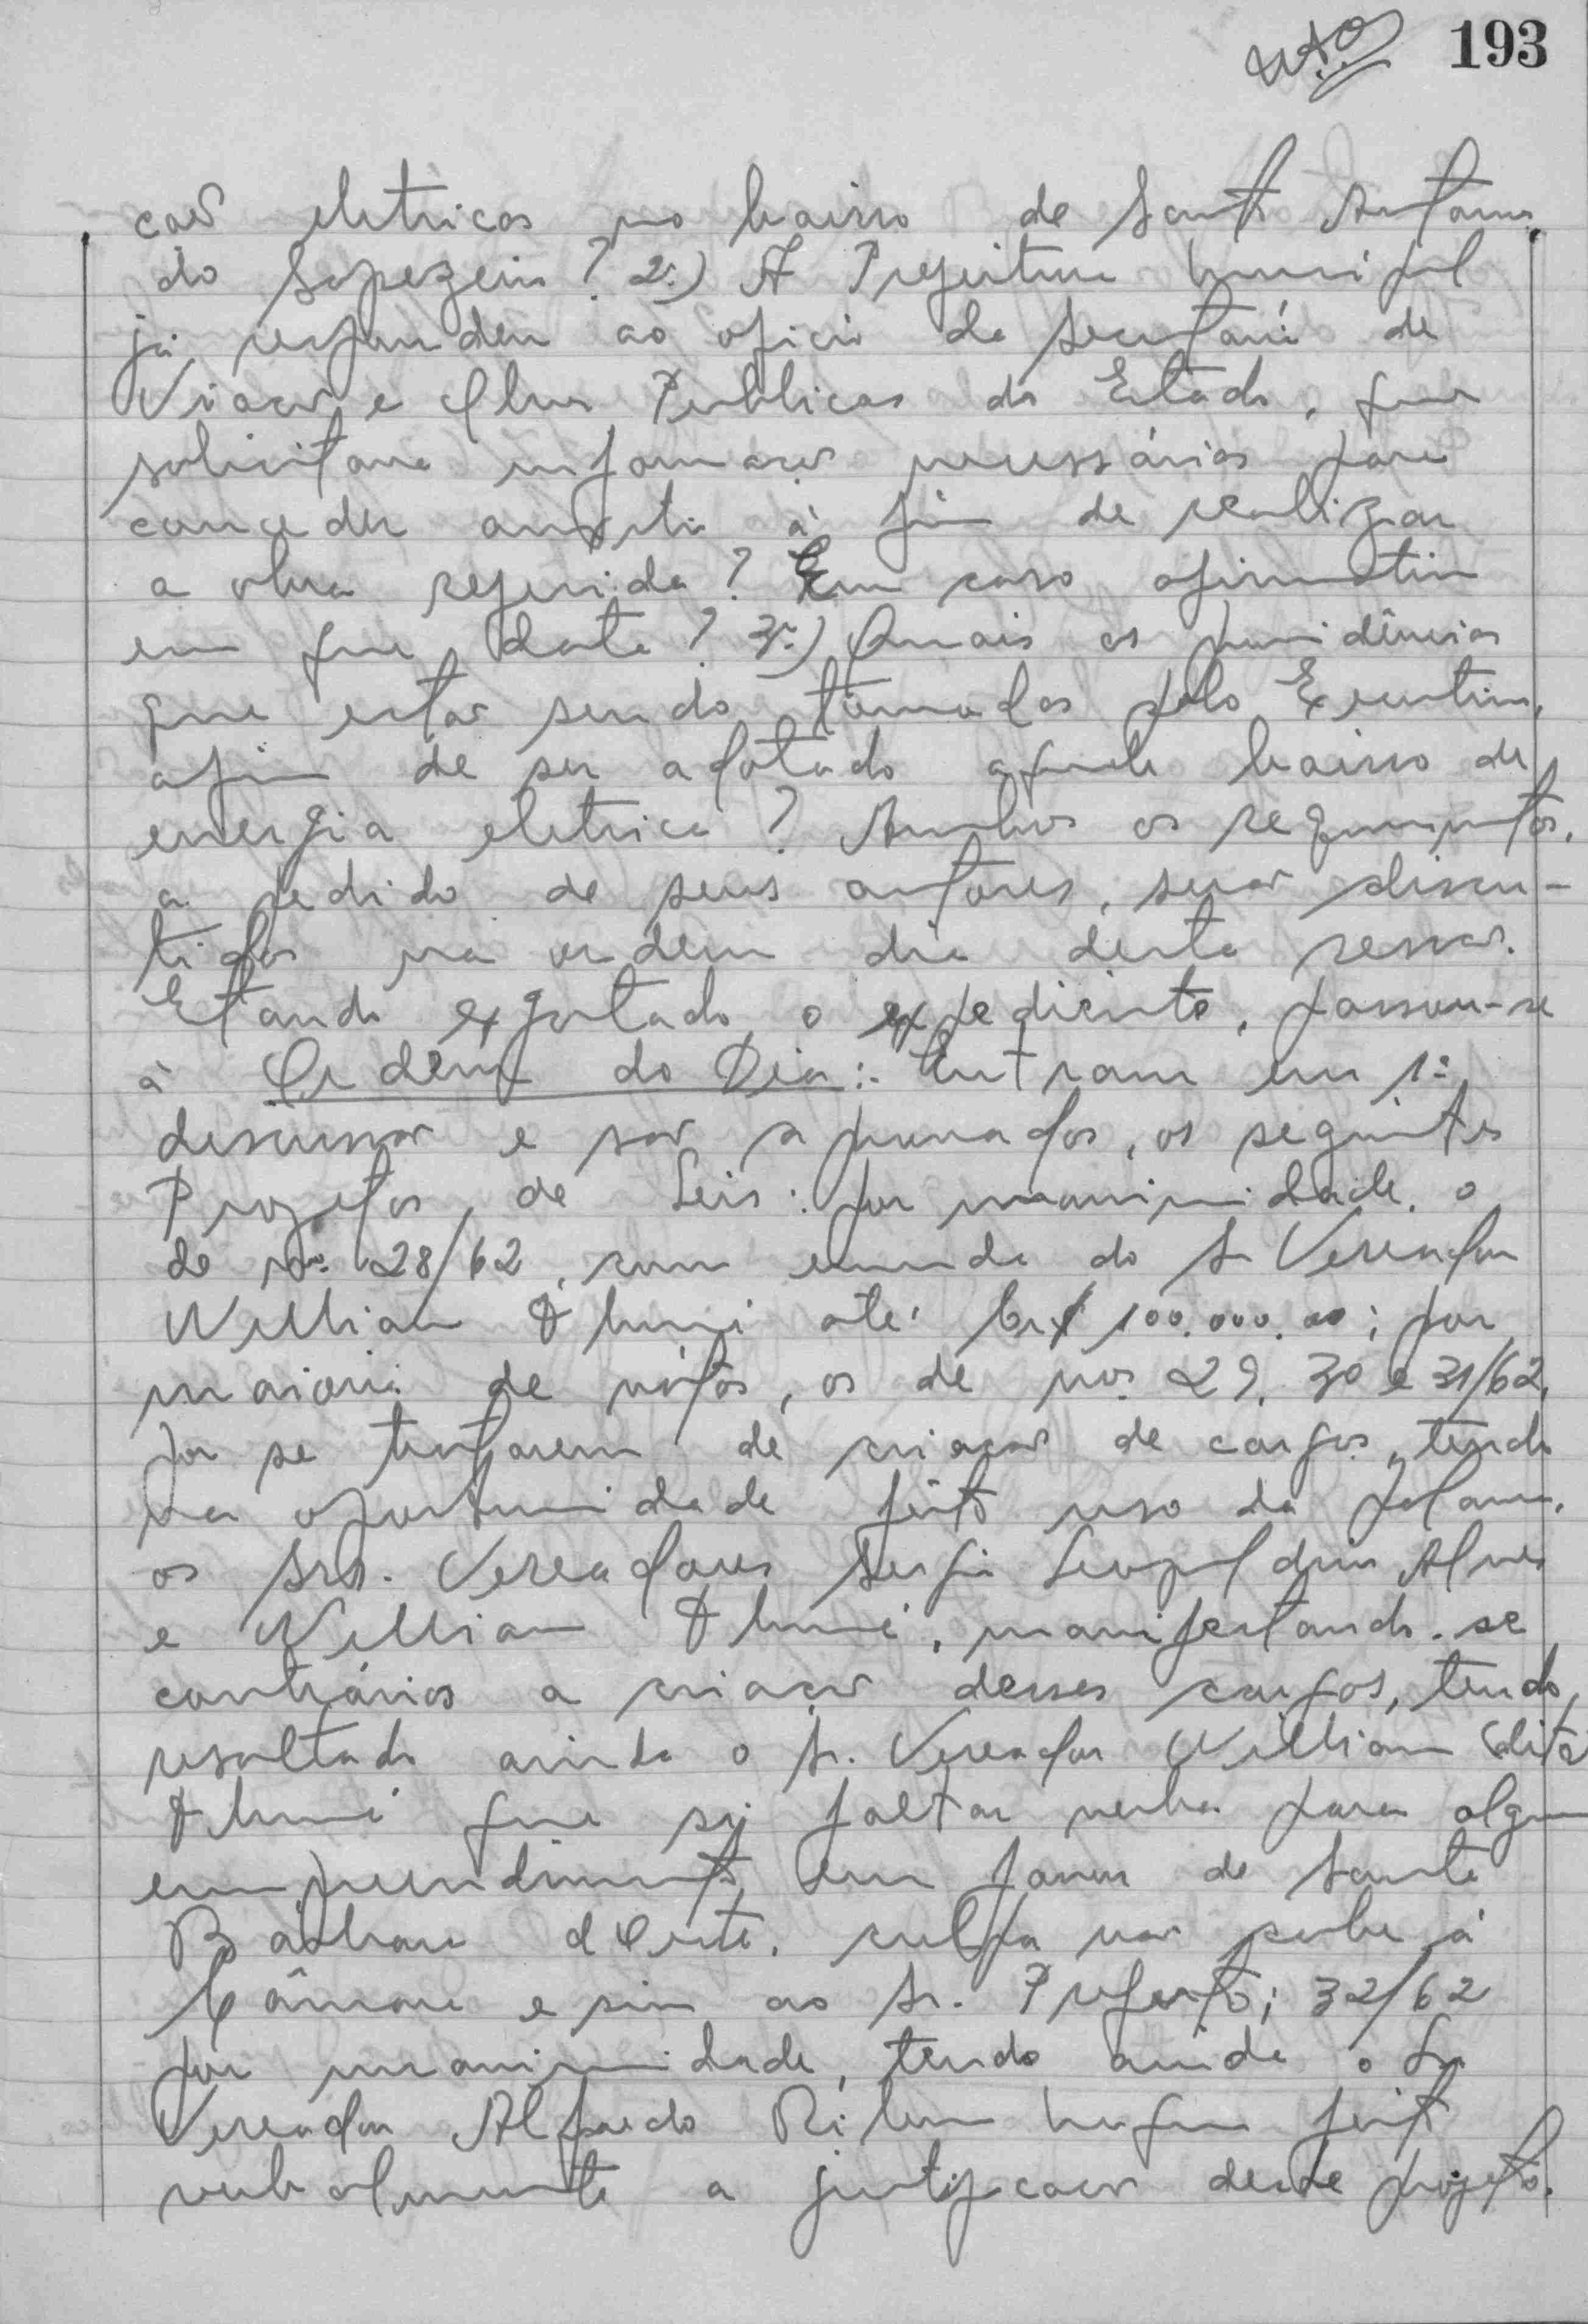 193
cas eletricas no bairro de Santo Antonio
do Sapezeiro? 2º) A Prefeitura Municipal
já respondeu ao oficio da Secretaria de
Viação e Obras Publicas do Estado, que
solicitava informações necessárias para
conceder auxilio à fim de realizar
a obra referida? Em caso afirmativo
em que data? 3º) Quais as providências
que estão sendo tomadas pelo Executivo,
afim de ser adotado aquele bairro de
energia eletrica? Ambos os requerimentos,
a pedido de seus autores, serão discu-
tidos na ordem dia desta sessão.
Estando esgotado o expediente, passou-se
à Ordem do Dia:- Entram em 1ª
discussão e são aprovados, os seguintes
Projetos de Leis: por unanimidade, o
de nº 28/62, com emenda do Sr Vereador
William até Cr$ 100.000,00; por
maioria de vótos, os de nos. 29, 30 e 31/62,
por se tratarem de criação de cargos, tendo
na oportunidade feito uso da palavra,
os Srs. Vereadores Sergio Leopoldino Alves
e William, manifestando-se
contrários a criação desses cargos, tendo
resaltado ainda o Sr. Vereador William
que si faltar verba para algum
empreendimento em favor de Santa
Bárbara d'Oeste, culpa não cabe á
Câmara e sim ao Sr. Prefeito; 32/62
por unanimidade, tendo ainda o Sr
Vereador Alfredo feito
verbalmente a justificação deste projeto.